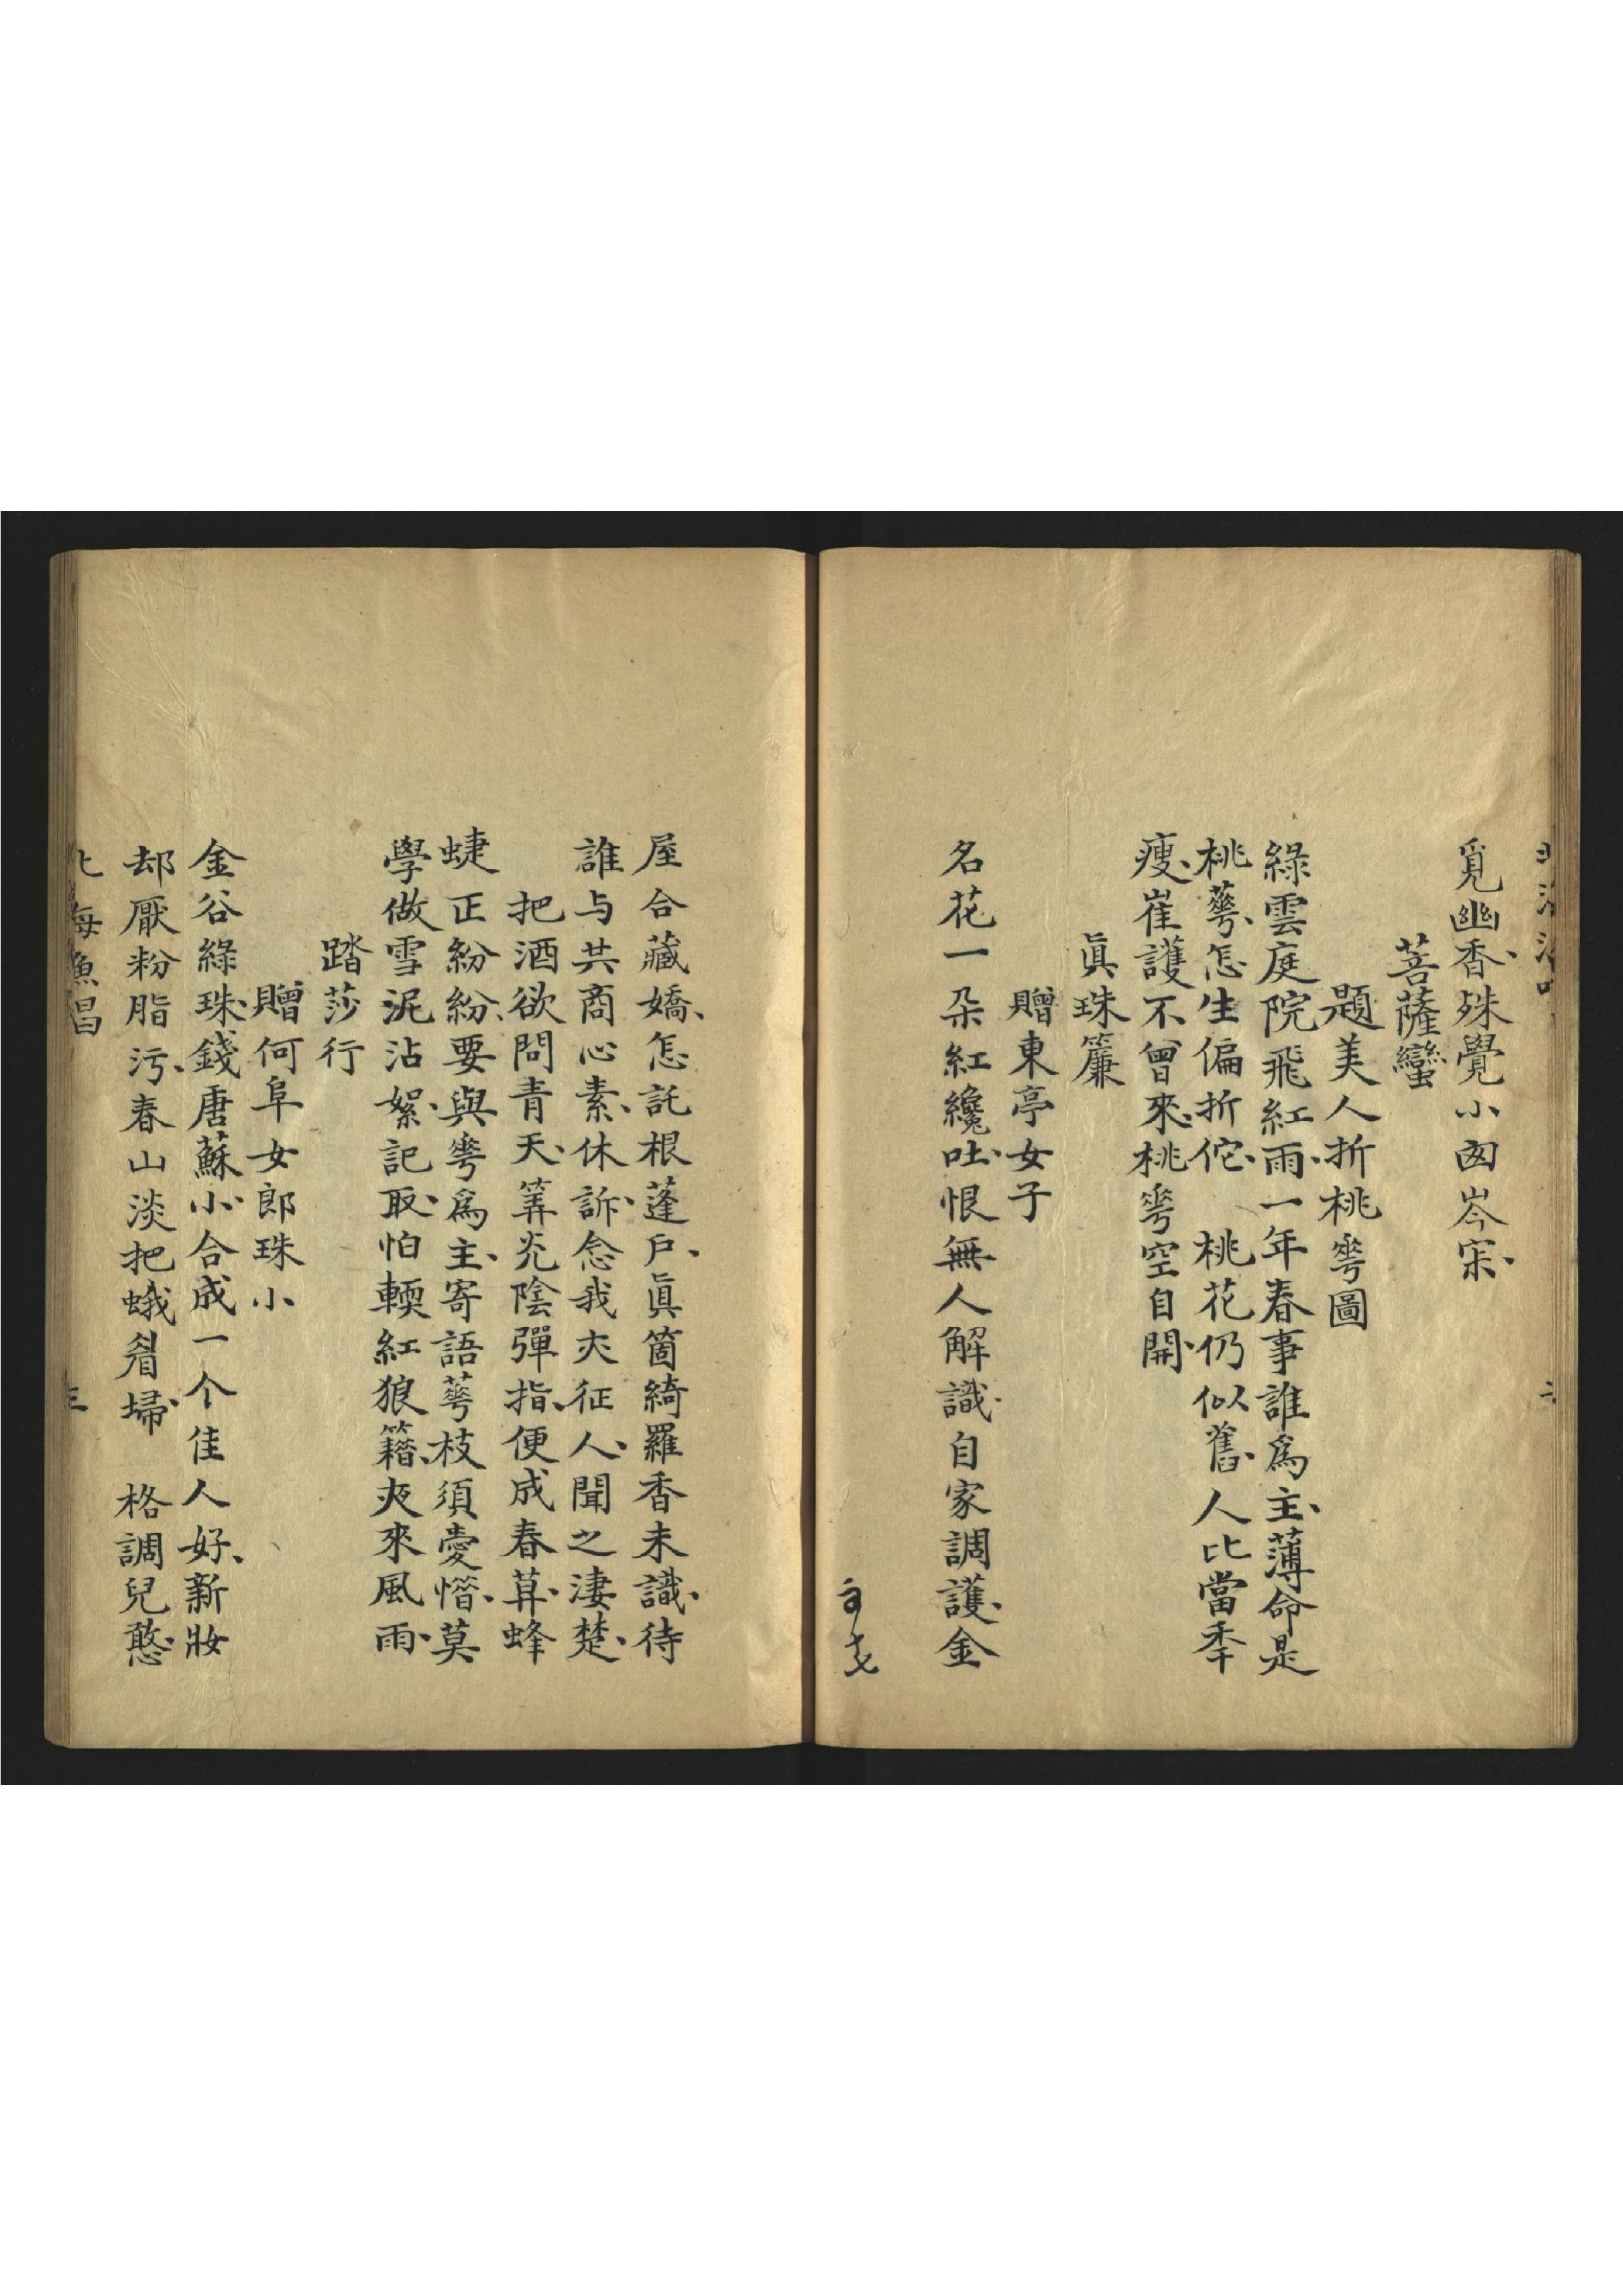 覓幽香、殊覺小囪岑宋、
菩薩蠻
題美人折桃蕚圖
綠雲庭院飛紅雨、一年春事誰爲主、薄命是
桃蕚、怎生偏折佗、桃花仍似舊、人比當秊
瘦、崔護不曾來、桃蕚空自開、
眞珠簾
贈東亭女子
名花一朶紅纔吐、恨無人解識、自家調護、金
屋合藏嬌、怎託根蓬戶、眞箇綺羅香未識、待
誰与共商心素、休訴、念我亦征人、聞之淒楚、
把酒欲問青天、筭光陰彈指、便成春暮、蜂
蜨正紛紛、要與蕚爲主、寄語蕚枝須愛惜、莫
學做雪泥沾絮、記取、怕輭紅狼籍、夜來風雨、
踏莎行
贈何阜女郎珠小
金谷綠珠、錢唐蘇小、合成一个佳人好、新妝
却厭粉脂污、春山淡把蛾眉埽、格調兒憨、
北海漁唱
三